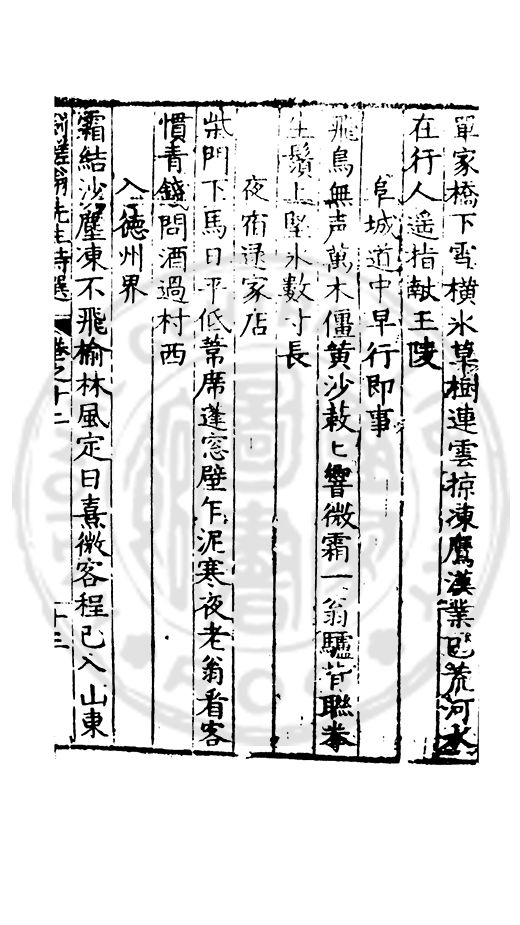 單家橋下雪橫氷草樹連雲掠凍鷹漢業已荒河水
在行人遥指献王陵
阜城道中早行即事
飛鳥無声萬木僵黄沙敕〻響微霜一翁驢背聯拳
坐鬚上堅氷數寸長
夜宿漫家店
柴門下馬日平低葦席蓬窓壁乍泥寒夜老翁看客
慣青錢問酒過村西
入德州界
霜結沙塵凍不飛榆林風定日熹微客程已入山東
先生詩選 卷之十二 十三